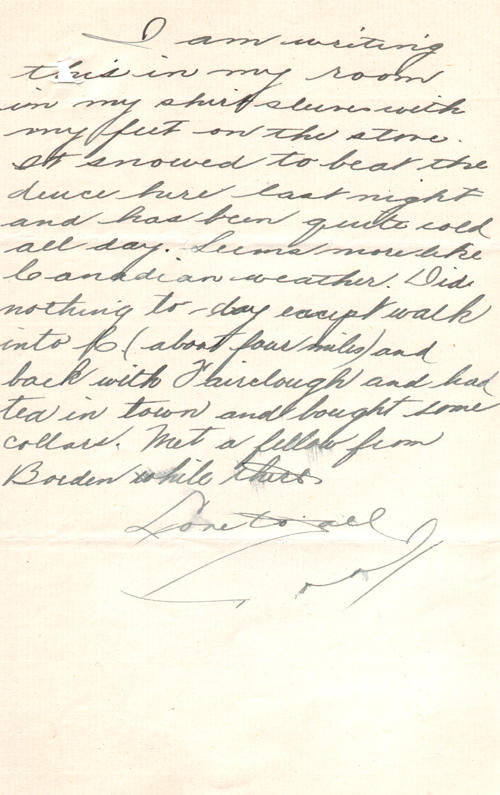 I am writing
this in my room
in my shirt sleeves with
my feet on the stove.
It snowed to beat the
deuce here last night
and has been quite cold
all day. Seems more like
Canadian weather. Did
nothing to-day except walk
into (about four miles) and
back with Fairclough and had
tea in town and bought some
collars. Met a fellow from
Borden while there
Love to all